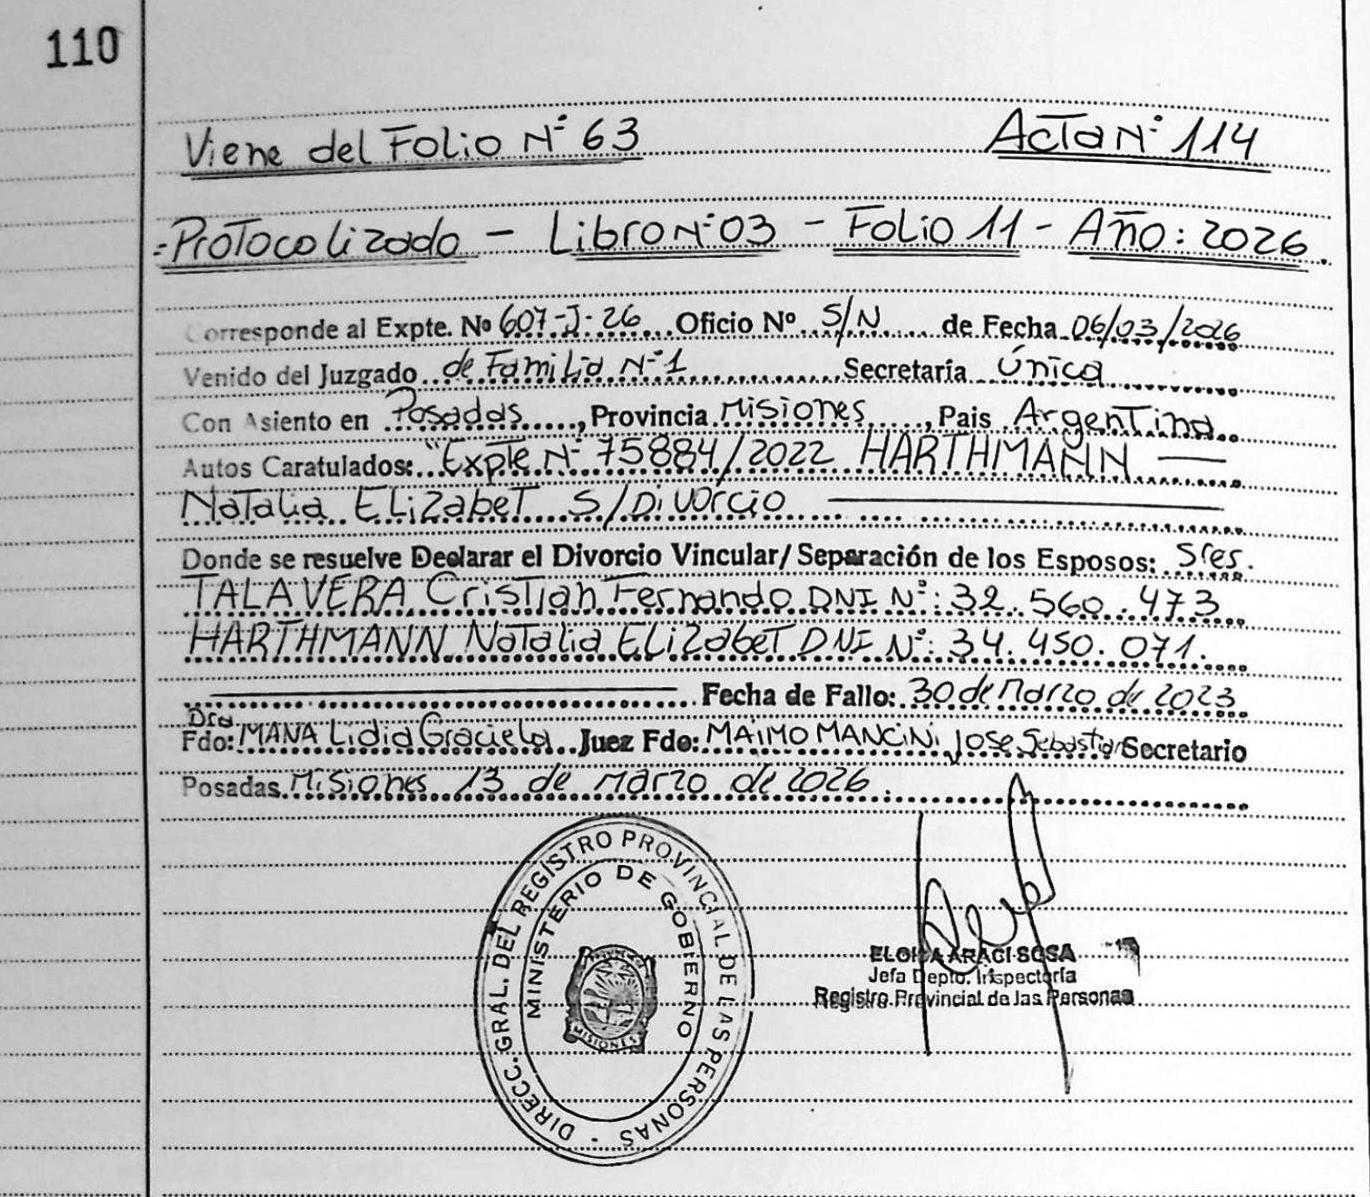 110
Viene del Folio Nº 63 Acta Nº 114
Protocolizado - Libro Nº 03 - Folio 11 - Año: 2026.
Corresponde al Expte. Nº 607-J-26 Oficio Nº S/N de Fecha 06/03/2026
Venido del Juzgado de Familia Nº 1 Secretaría Única
Con Asiento en Posadas, Provincia Misiones, Pais Argentina
Autos Caratulados: "Expte Nº 75884/2022 HARTHMANN
Natalia Elizabet S/Divorcio
Donde se resuelve Declarar el Divorcio Vincular/ Separación de los Esposos: Sres.
TALAVERA Cristian Fernando DNI Nº: 32.560.473
HARTHMANN Natalia Elizabet DNI Nº: 34.450.071.
Fecha de Fallo: 30 de Marzo de 2023
Fdo: Dra MANA Lidia Graciela Juez Fdo: MAIMO MANCINI Jose Sebastian Secretario
Posadas Misiones 13 de Marzo de 2026.
DIRECC. GRAL. DEL REGISTRO PROVINCIAL DE LAS PERSONAS
MINISTERIO DE GOBIERNO
MISIONES
ELOISA ARACI SOSA
Jefa Depto. Inspectoría
Registro Provincial de las Personas